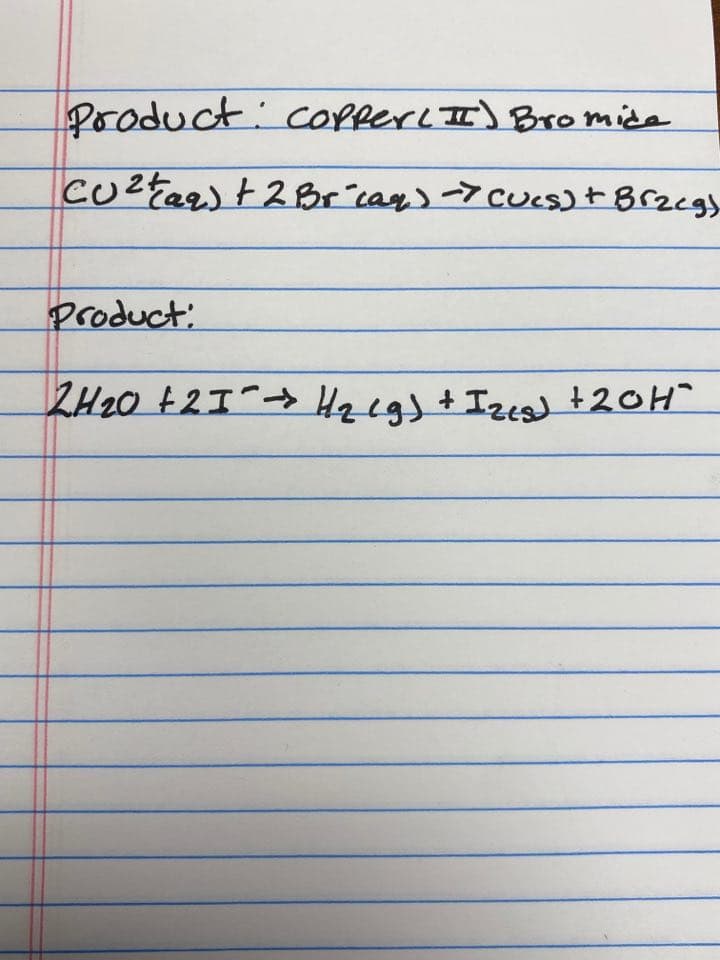 Product: Copper(II) Bromide
Cu²⁺(aq) + 2Br⁻(aq) → Cu(s) + Br2(g)
Product:
2H2O + 2I⁻ → H2(g) + I2(s) + 2OH⁻